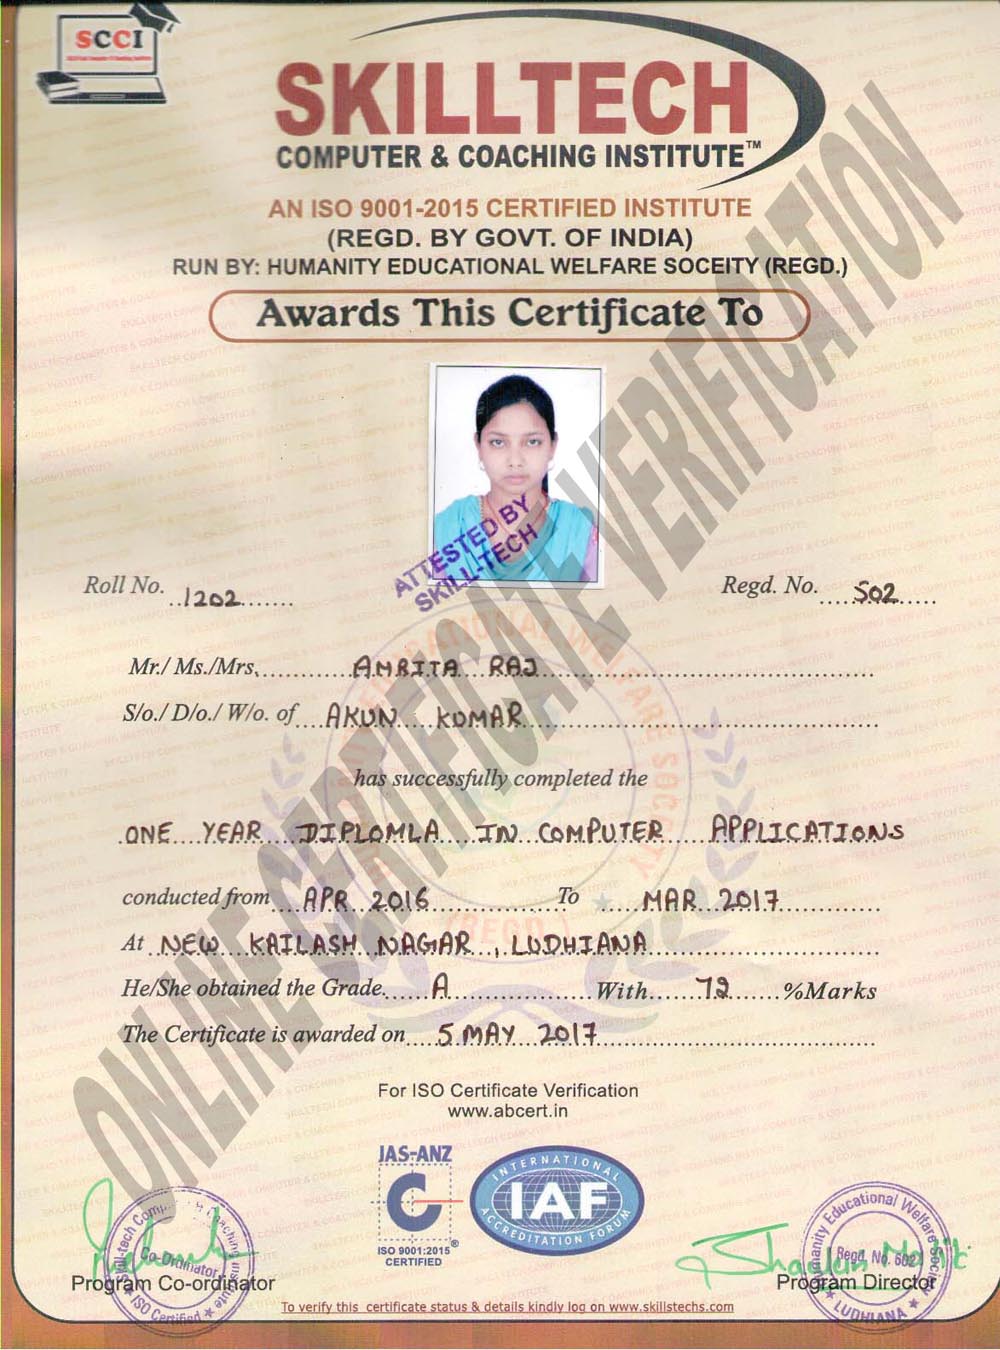 SCCI
SKILLTECH
COMPUTER & COACHING INSTITUTE™
AN ISO 9001-2015 CERTIFIED INSTITUTE
(REGD. BY GOVT. OF INDIA)
RUN BY: HUMANITY EDUCATIONAL WELFARE SOCEITY (REGD.)
Awards This Certificate To
ATTESTED BY
SKILL-TECH
Roll No. 1202
Regd. No. 502
Mr./ Ms./Mrs. AMRITA RAJ
S/o./ D/o./ W/o. of AKUN KUMAR
has successfully completed the
ONE YEAR DIPLOMLA IN COMPUTER APPLICATIONS
conducted from APR 2016 To MAR 2017
At NEW KAILASH NAGAR, LUDHIANA
He/She obtained the Grade A With 72 %Marks
The Certificate is awarded on 5 MAY 2017
ONLINE CERTIFICATE VERIFICATION
For ISO Certificate Verification
www.abcert.in
JAS-ANZ
ISO 9001:2015
CERTIFIED
INTERNATIONAL
IAF
ACCREDITATION FORUM
®
Co-Ordinator
ISO Certified
Program Co-ordinator
Humanity Educational Welfare Society
Regd. No. 602
LUDHIANA
Program Director
To verify this certificate status & details kindly log on www.skillstechs.com